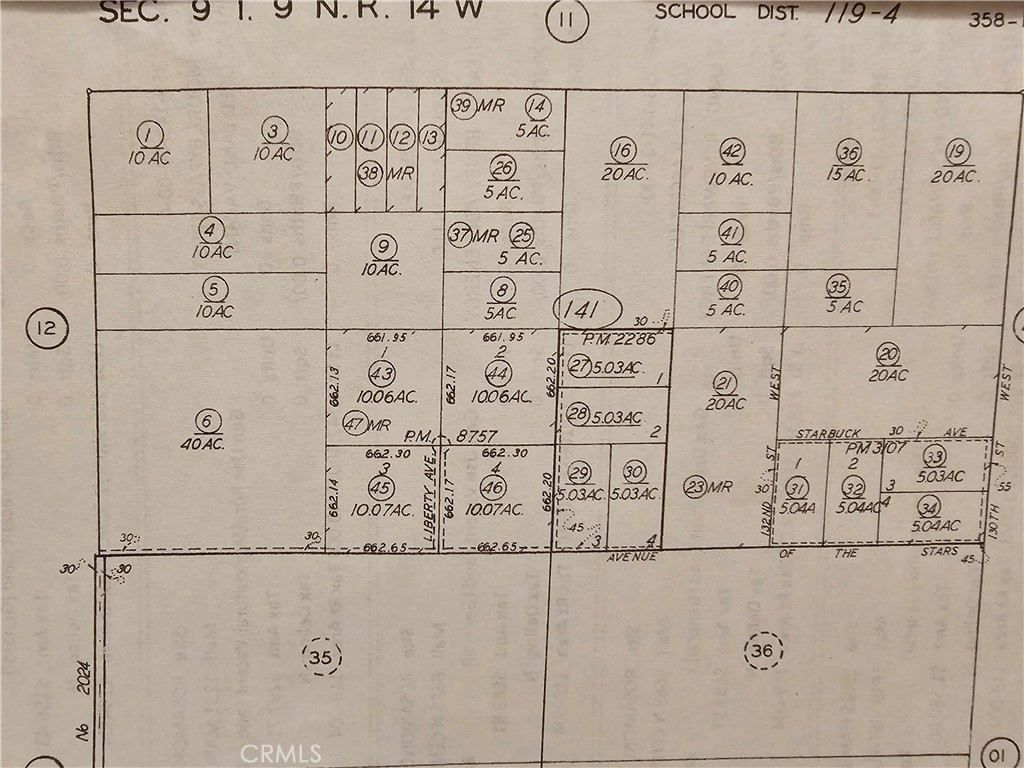 SEC. 9 T. 9 N. R. 14 W
11
SCHOOL DIST. 119-4
358-1
1
10 AC
3
10 AC
10
11
12
13
38 MR
39 MR
14
5 AC.
26
5 AC.
16
20 AC.
42
10 AC.
36
15 AC.
19
20 AC.
4
10 AC
9
10 AC.
37 MR
25
5 AC.
41
5 AC.
5
10 AC
8
5 AC.
40
5 AC.
35
5 AC
12
141
30
661.95
661.95
P.M. 2286
1
2
27
5.03 AC.
1
43
10.06 AC.
44
10.06 AC.
662.13
662.17
662.20
28
5.03 AC.
2
21
20 AC
20
20 AC
WEST
WEST
6
40 AC.
47 MR
P.M. 8757
STARBUCK AVE
30
662.30
662.30
3
4
45
10.07 AC.
46
10.07 AC.
662.14
LIBERTY AVE.
662.17
662.20
29
5.03 AC.
30
5.03 AC.
23 MR
PM 3107
1
2
33
5.03 AC
3
31
5.04 A
32
5.04 AC
4
34
5.04 AC
132ND ST
30
130TH ST
55
45
3
4
30
30
662.65
662.65
AVENUE OF THE STARS
45
30
30
35
36
No 2024
CRMLS
10